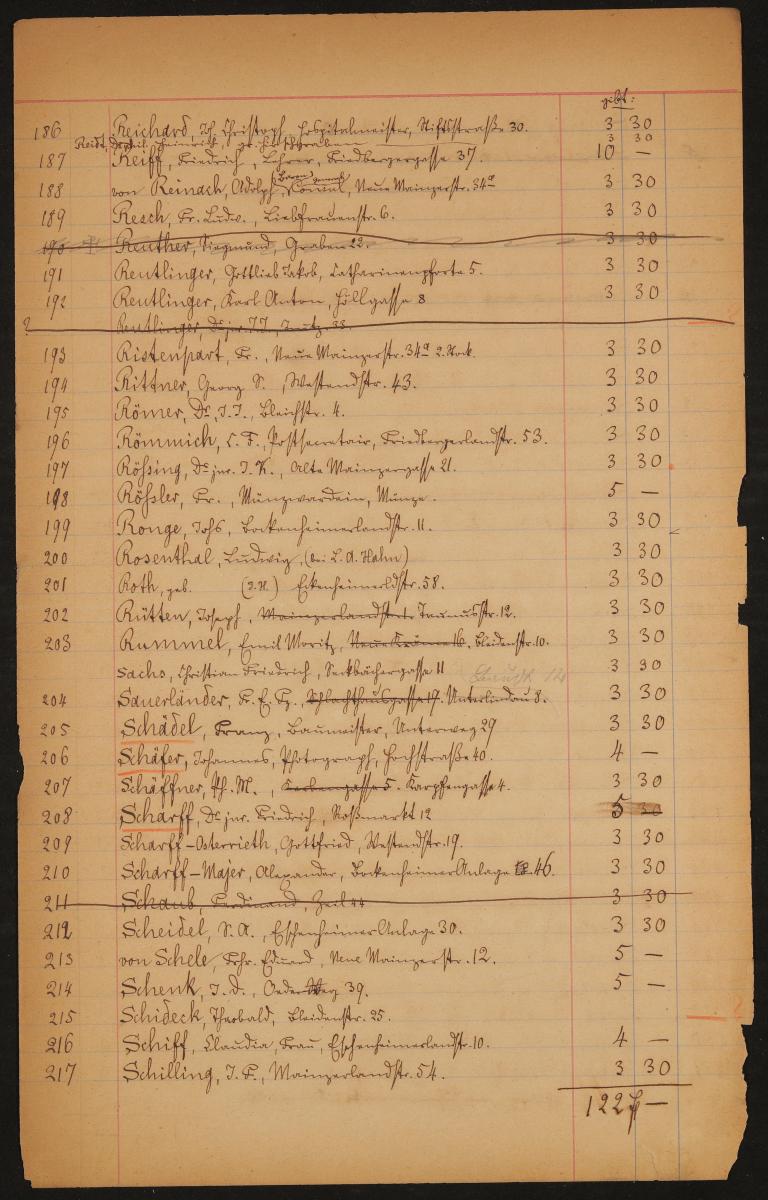 gibt:
186 Reichard, Joh. Christoph, Hospitalmeister, Stiftsstraße 30. 3 30
Heinrich, gr. Hirschgraben 3 30
187 Reiff, Friedrich, Lehrer, Friedbergergasse 37. 10 —
188 von Reinach, Adolph, Consul, Neue Mainzerstr. 34a 3 30
189 Resch, Fr. Ludw., Liebfrauenstr. 6. 3 30
190 Reuther, Siegmund, Graben 22. 3 30
191 Reutlinger, Gottlieb Jakob, Catharinenpforte 5. 3 30
192 Reutlinger, Karl Anton, Höllgasse 8 3 30
? Reutlinger, Dr jur. J. J.,
193 Ristenpart, Fr., Neue Mainzerstr. 34a 2. Stock. 3 30
194 Rittner, Georg S., Westendstr. 43. 3 30
195 Römer, Dr, J. J., Bleichstr. 4. 3 30
196 Römmich, C. F., Postsecretair, Friedbergerlandstr. 53. 3 30
197 Rößing, Dr jur. J. K., Alte Mainzergasse 21. 3 30
198 Rößler, Fr., Münzwardein, Münze. 5 —
199 Ronge, Johs, Bockenheimerlandstr. 11. 3 30
200 Rosenthal, Ludwig, (bei L. A. Hahn) 3 30
201 Roth, geb. (J. H.) Eckenheimerldstr. 58. 3 30
202 Rütten, Joseph, Mainzerlandstraße Taunusstr. 12. 3 30
203 Rummel, Emil Moritz, Neue Kräme 16, Bleidenstr. 10. 3 30
Sachs, Christian Friedrich, Seckbächergasse 11 3 30
204 Sauerländer, Schlachthausgasse 19. Unterlindau 8. 3 30
205 Schädel, Franz, Baumeister, Unterweg 29 3 30
206 Schäfer, Johannes, Photograph, Hochstraße 40. 4 —
207 Schäffner, Ph. M., Karpfengasse 4. 3 30
208 Scharff, Dr jur. Friedrich, Roßmarkt 12 5 30
209 Scharff-Osterrieth, Gottfried, Westendstr. 19. 3 30
210 Scharff-Majer, Alexander, Bockenheimer Anlage 46. 3 30
211 Schaub, Ferdinand, Zeil 44 3 30
212 Scheidel, S. A., Eschenheimer Anlage 30. 3 30
213 von Schele, Frhr. Eduard, Neue Mainzerstr. 12. 5 —
214 Schenk, J. D., Oederweg 39. 5 —
215 Schideck, Theobald, Bleidenstr. 25.
216 Schiff, Claudia, Frau, Eschenheimerlandstr. 10. 4 —
217 Schilling, J. F., Mainzerlandstr. 54. 3 30
122 f —